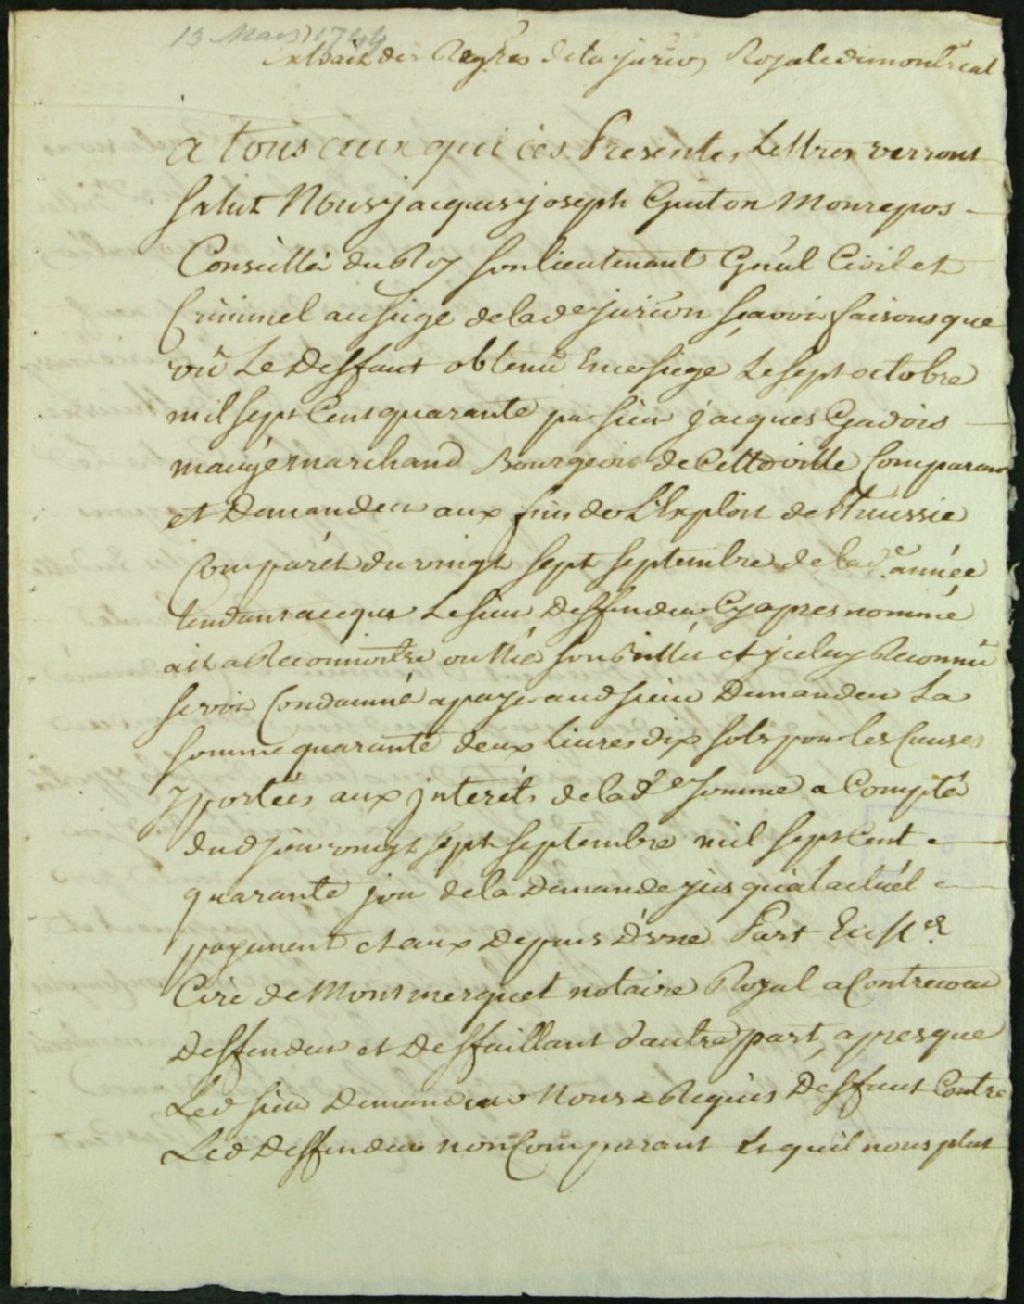 13 Mars 1744
Extrait des Regres de la jurion Royale de montreal
a tous ceux qui ces Presentes Lettres verront
Salut Nous jacques joseph Guiton Monrepos
Conseiller du Roy son lieutenant Gñal Civil et
Criminel au siege de lade jurion sçavoir faisons que
vû Le Deffaut obtenu En ce siege Le sept octobre
mil sept Cent quarante par sieur jacques Gadois
maugé marchand Bourgeois de Cette ville Comparant
et Demandeur aux fins de L'Exploit de l'huissie
Comparét du vingt sept septembre de lad.e année
tendant a ce que Le sieur Deffendeur Cy apres nommé
ait a Reconnoitre ou Nié son billet et jceluy Reconnu
se voir Condamné a payer aud sieur Demandeur La
somme quarante deux Livres dix sols pour les Causes
y portées aux jnterêts de lad.e somme a Compter
dud jour vingt sept septembre mil sept Cent
quarante jour de la Demande jusqu'a l'actuel
payement et aux Depens D'une Part Et le sr
Ciré de Monmerquet notaire Royal a Contrecoeur
Deffendeur et Deffaillant d'autre part, apres que
Led sieur Demandeur Nous a Requis Deffaut Contre
Led Deffendeur non Comparant Et qu'il nous plut